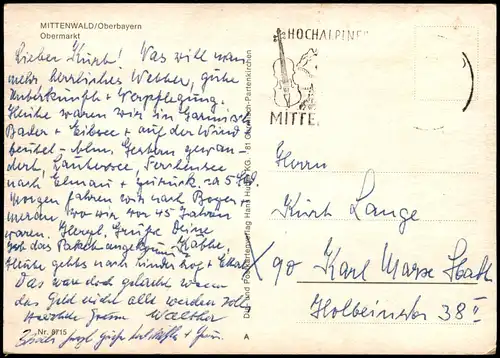 MITTENWALD/Oberbayern
Obermarkt
Lieber Kurt! Was will man
mehr herrliches Wetter, gute
Unterkünfte + Verpflegung.
Heute waren wir in Garmisch
Bader + Eibsee + auf der
Alm. Gestern gewan-
dert, Lautersee, Ferchensee
nach Elmau + zurück. ca 5 Std.
Morgen fahren wir nach Bozen,
meran. Wo wir vor 45 Jahren
waren. Herzl. Grüße Deine
Käthe,
Heute gehts nach
Das wäre doch gelacht wenn
das Geld nicht alle werden soll.
Walther
Nr. 8715
Druck und Postkartenverlag Hans Huber KG. 81 Garmisch-Partenkirchen
A
HOCHALPINE
MITTE
Herrn
Kurt Lange
X 90 Karl Marx Stadt
Holbeinstr 38 II